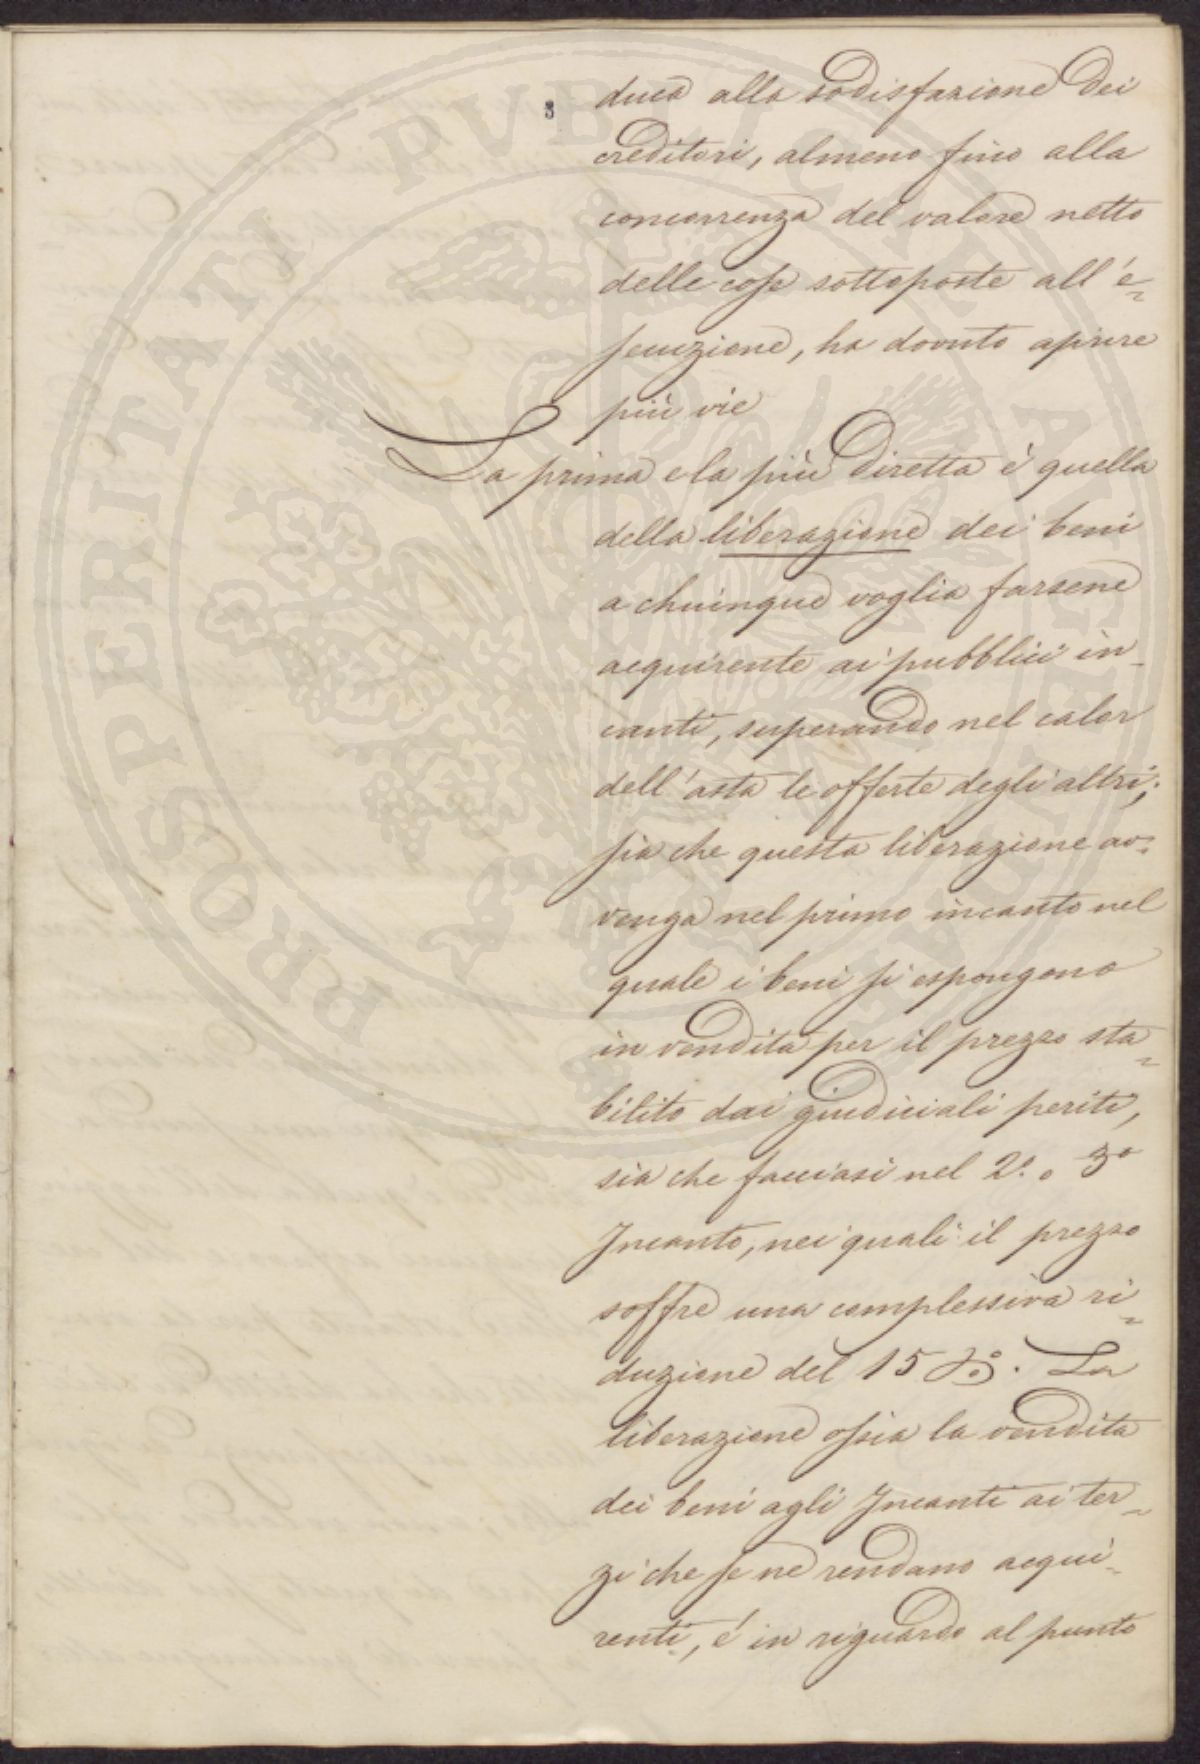 3
duca alla sodisfazione dei
creditori, almeno fino alla
concorrenza del valore netto
delle cose sottoposte all'e=
secuzione, ha dovuto aprire
più vie
La prima e la più diretta è quella
della liberazione dei beni
a chiunque voglia farsene
acquirente ai pubblici in=
canti, superando nel calor
dell'asta le offerte degli altri;
sia che questa liberazione av=
venga nel primo incanto nel
quale i beni si espongono
in vendita per il prezzo sta=
bilito dai giudiciali periti,
sia che facciasi nel 2.º o 3º
Incanto, nei quali il prezzo
soffre una complessiva ri=
duzione del 15 %. La
liberazione ossia la vendita
dei beni agli Incanti ai ter=
zi che se ne rendano acqui=
renti, è in riguardo al punto
PROSPERITATI PVBLICAE AVGENDAE